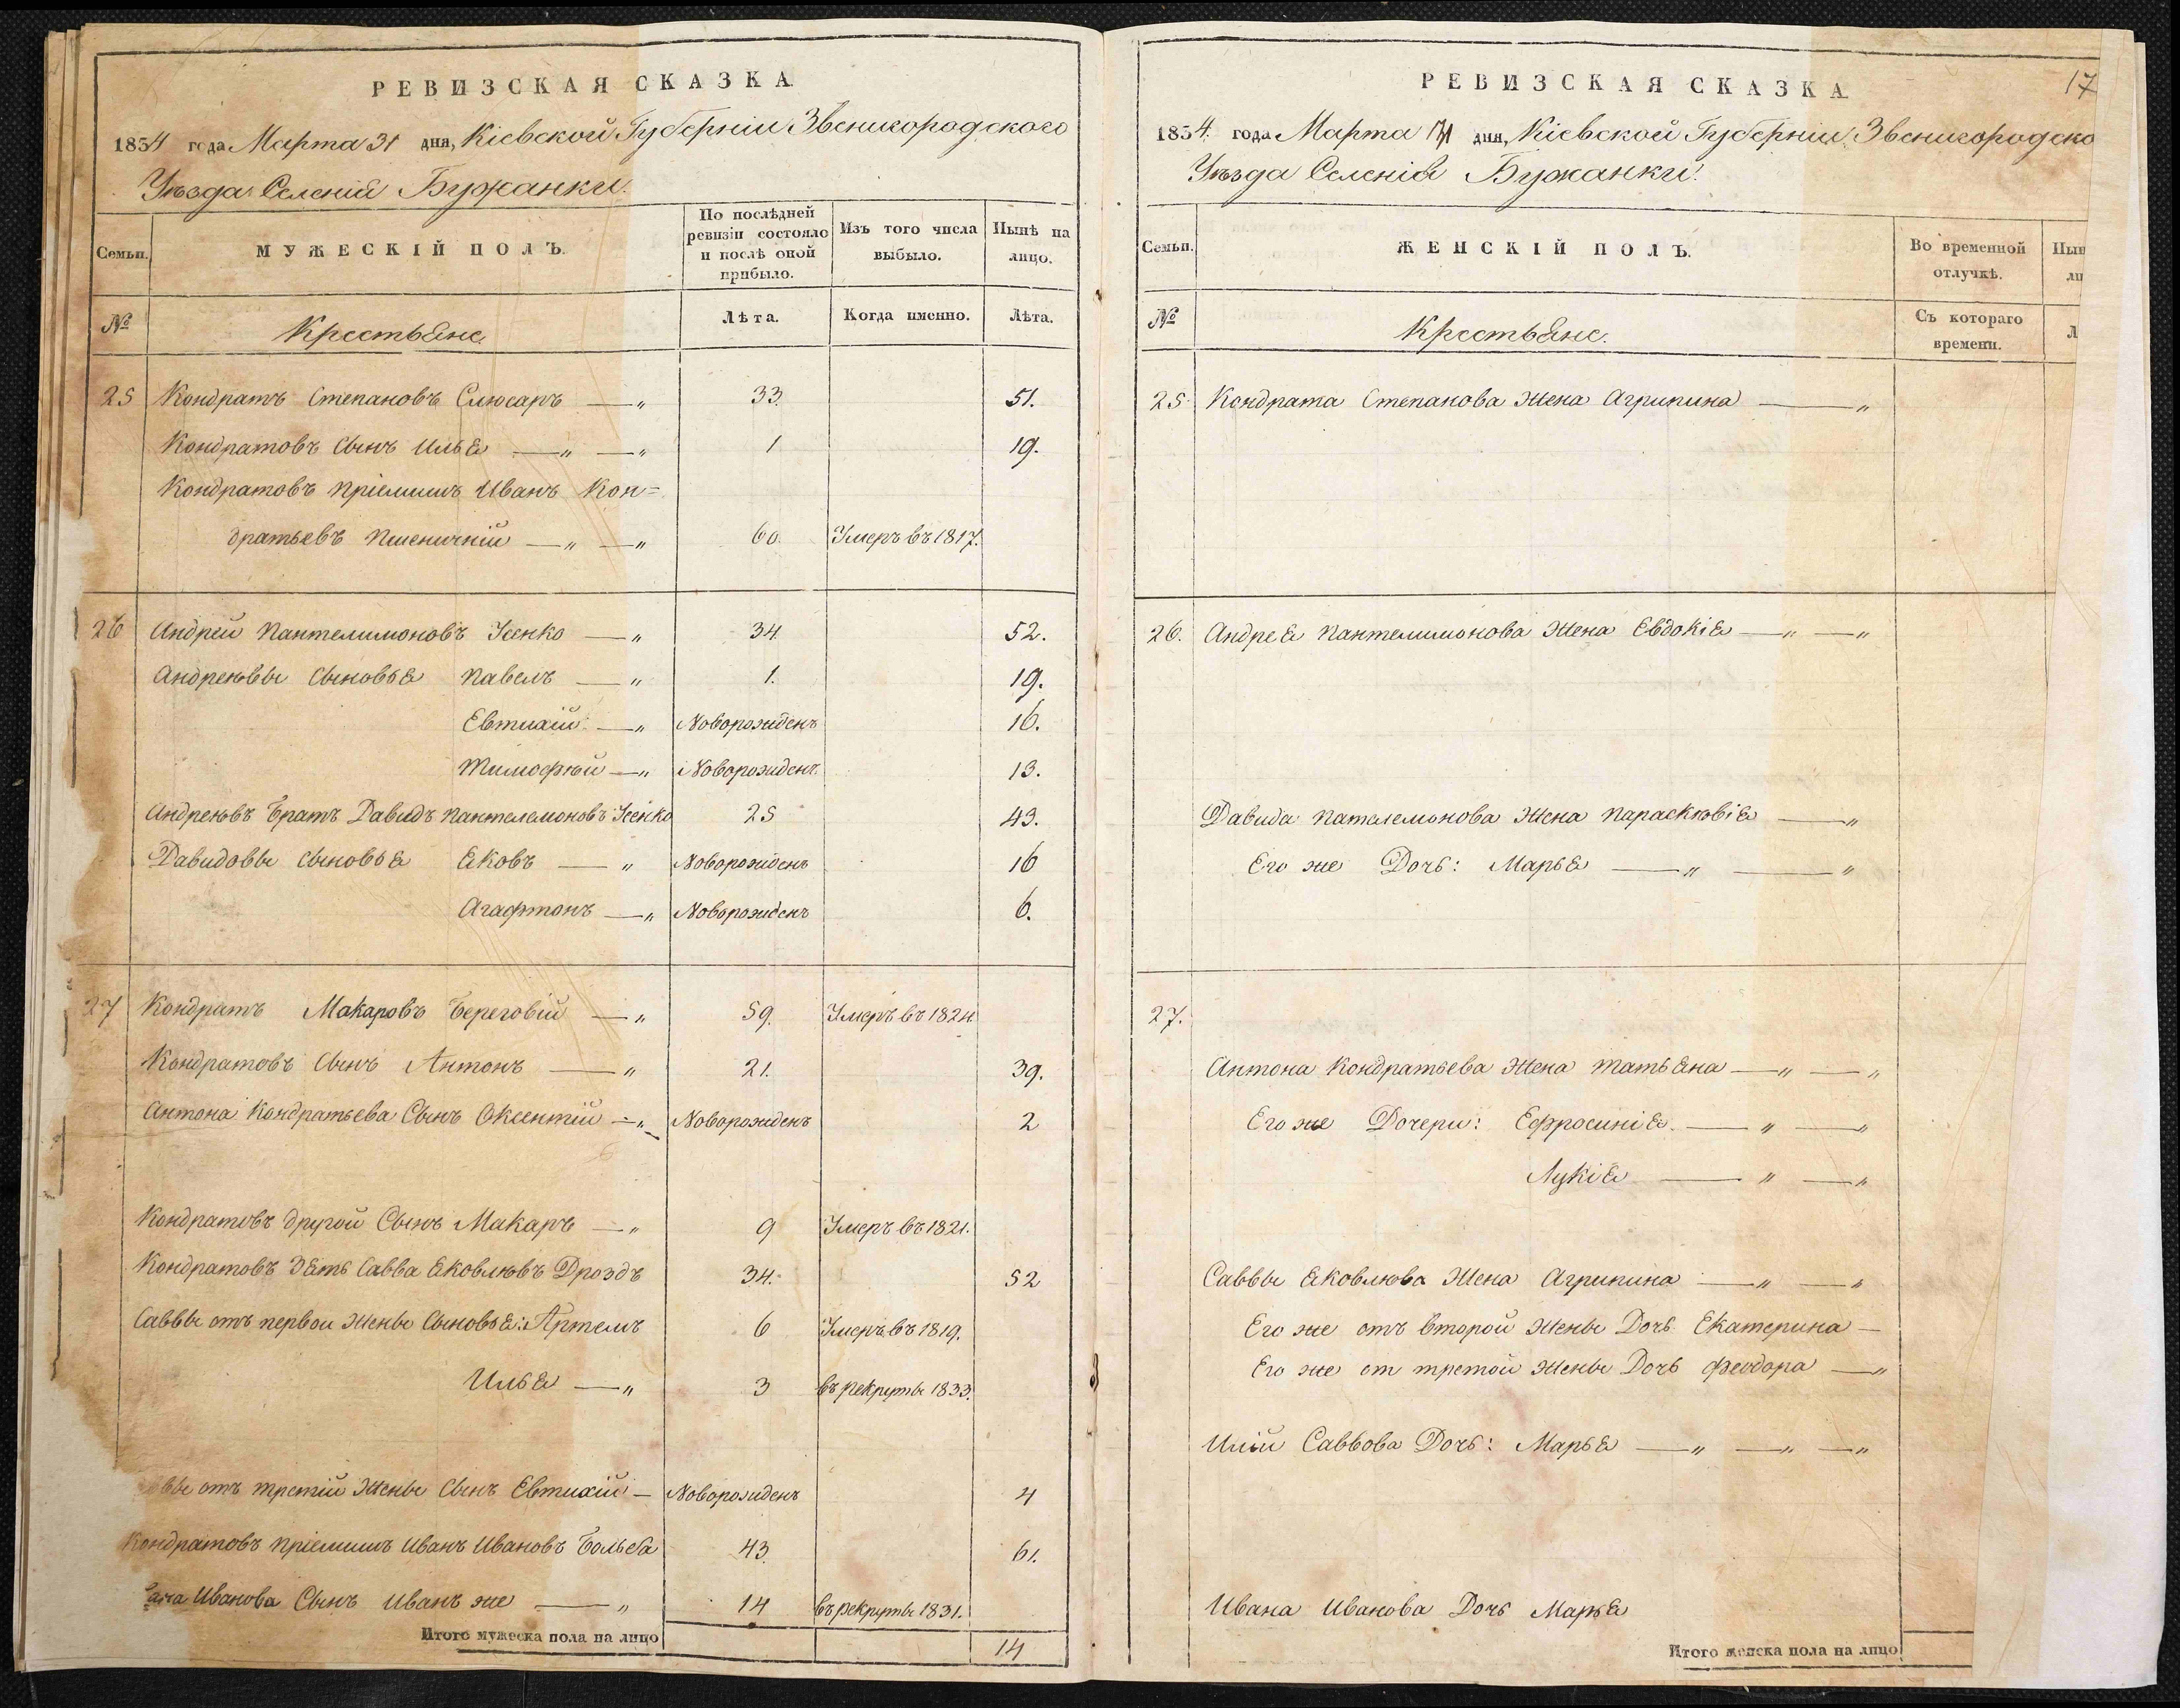 РЕВИЗСКАЯ СКАЗКА
1834 года Марта 31 дня, Кіевской Губерніи Звенигородского
Уѣзда Селенія Бужанки.
Семьи.
МУЖЕСКІЙ ПОЛЪ.
По послѣдней ревизіи состояло и послѣ оной прибыло.
Изъ того числа выбыло.
Нынѣ на лицо.
№
Крестьяне.
Лѣта.
Когда именно.
Лѣта.
25 Кондратъ Степановъ Слюсаръ — „ 33. 51.
Кондратовъ Сынъ Илья — „ — „ 1 19.
Кондратовъ пріемышъ Иванъ Кон=
дратьевъ Пшеничній — „ — „ 60. Умеръ въ 1817.
26 Андрей Пантелимоновъ Усенко — „ 34 52.
Андреювы Сыновья Павелъ — „ 1. 19.
Евтихій — „ Новорожденъ 16.
Тимофѣй — „ Новорожденъ 13.
Андреювъ Братъ Давидъ Пантелемоновъ Усенко 25 43.
Давидовы Сыновья Яковъ — „ Новорожденъ 16
Агафтонъ — „ Новорожденъ 6.
27 Кондратъ Макаровъ Береговій — „ 59. Умеръ въ 1824.
Кондратовъ Сынъ Антонъ — „ 21. 39.
Антона Кондратьева Сынъ Оксентій — „ Новорожденъ 2
Кондратовъ другой Сынъ Макаръ — „ 9 Умеръ въ 1821.
Кондратовъ Зять Савва Яковлювъ Дроздъ 34. 52
Саввы отъ первои жены Сыновья: Артемъ 6 Умеръ въ 1819.
Илья — „ 3 въ рекруты 1833.
вы отъ третій жены Сынъ Евтихій — Новорожденъ 4
Кондратовъ пріемышъ Иванъ Ивановъ 43. 61.
Иванова Сынъ Иванъ же — „ 14 въ рекруты 1831.
Итого мужеска пола на лицо 14
17
РЕВИЗСКАЯ СКАЗКА
1834. года Марта 31 дня, Кіевской Губерніи, Звенигородско
Уѣзда Селенія Бужанки.
Семьи.
ЖЕНСКІЙ ПОЛЪ.
Во временной отлучкѣ.
Нын
ли
№
Крестьяне.
Съ котораго времени.
Л
25. Кондрата Степанова Жена Агрипина — „
26. Андрея Пантелимонова Жена Евдокія — „ — „
Давида Пателемонова Жена Параскювія — „
Его же Дочь: Марья — „ — „
27.
Антона Кондратьева Жена Татьяна — „ — „
Его же Дочери: Ефросинія — „ — „
Лукія — „ — „
Саввы Яковлюва Жена Агрипина — „ — „
Его же отъ второй жены Дочь Екатерина —
Его же от третой жены Дочь Феодора — „
Иліи Саввова Дочь: Марья — „ — „ — „
Ивана Иванова Дочь Марья
Итого женска пола на лицо